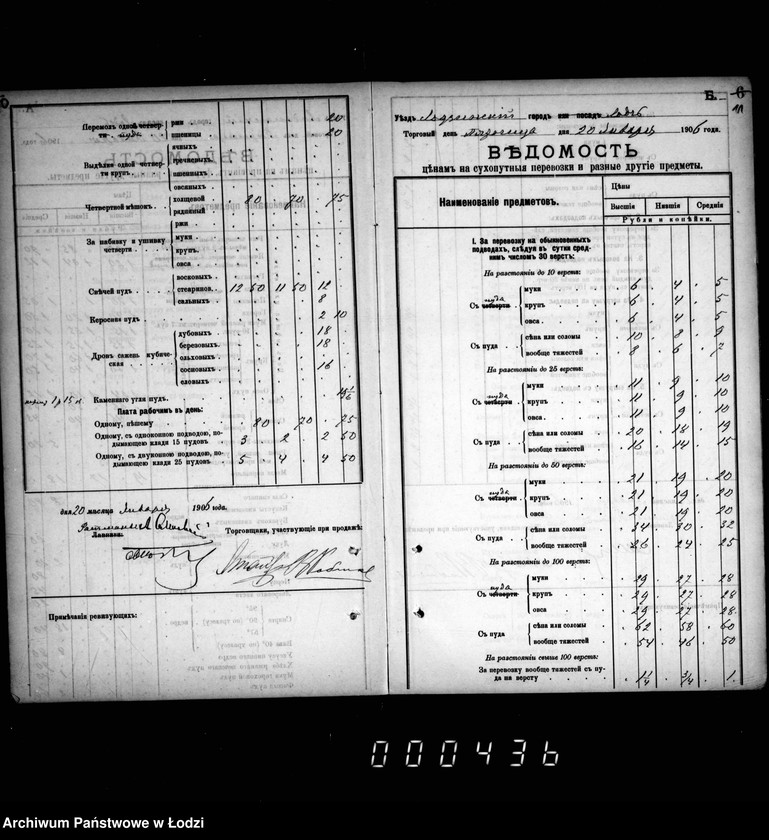 Перемолъ одной четверти пуда
ржи 20
пшеницы 20
Выдѣлка одной четверти крупъ
ячныхъ
гречневыхъ
пшенныхъ
овсяныхъ
Четвертной мѣшокъ
холщевой 80 70 75
рядняный
За набивку и ушивку четверти
ржи
муки
крупъ
овса
Свѣчей пудъ
восковыхъ
стеаринов. 12 50 11 50 12
сальныхъ 8
Керосина пудъ 2 10
Дровъ сажень кубическая
дубовыхъ 18
березовыхъ 18
ольховыхъ
сосновыхъ 16
еловыхъ
Каменнаго угля пудъ
Плата рабочимъ въ день:
Одному, пѣшему 80 70 75
Одному, съ одноконною подводою, подымающею клади 15 пудовъ 3 2 2 50
Одному, съ двуконною подводою, подымающею клади 25 пудовъ 5 4 4 50
дня 20 мѣсяца Января 1906 года.
Торговщики, участвующіе при продажѣ:
Примѣчанія ревизующихъ:
Б. 6
11
Уѣздъ Лодзинскій городъ или посадъ Лодзь
Торговый день Пятница дня 20 Января 1906 года.
ВѢДОМОСТЬ
цѣнамъ на сухопутныя перевозки и разные другіе предметы.
Наименованіе предметовъ.
Цѣны
Высшія Низшія Среднія
Рубли и копѣйки.
I. За перевозку на обыкновенныхъ
подводахъ, слѣдуя въ сутки среднимъ
числомъ 30 верстъ:
На разстояніи до 10 верстъ:
Съ четверти пуда
муки 6 4 5
крупъ 6 4 5
овса 6 4 5
Съ пуда
сѣна или соломы 10 8 9
вообще тяжестей 8 6 7
На разстояніи до 25 верстъ:
Съ четверти
муки 11 9 10
крупъ 11 9 10
овса 11 9 10
Съ пуда
сѣна или соломы 20 18 19
вообще тяжестей 16 14 15
На разстояніи до 50 верстъ:
Съ четверти пуда
муки 21 19 20
крупъ 21 19 20
овса 21 19 20
Съ пуда
сѣна или соломы 34 30 32
вообще тяжестей 26 24 25
На разстояніи до 100 верстъ:
Съ четверти пуда
муки 29 27 28
крупъ 29 27 28
овса 29 27 28
Съ пуда
сѣна или соломы 62 58 60
вообще тяжестей 54 46 50
На разстояніи свыше 100 верстъ:
За перевозку вообще тяжестей съ пуда на версту 1¼ ¾ 1
000436
Archiwum Państwowe w Łodzi